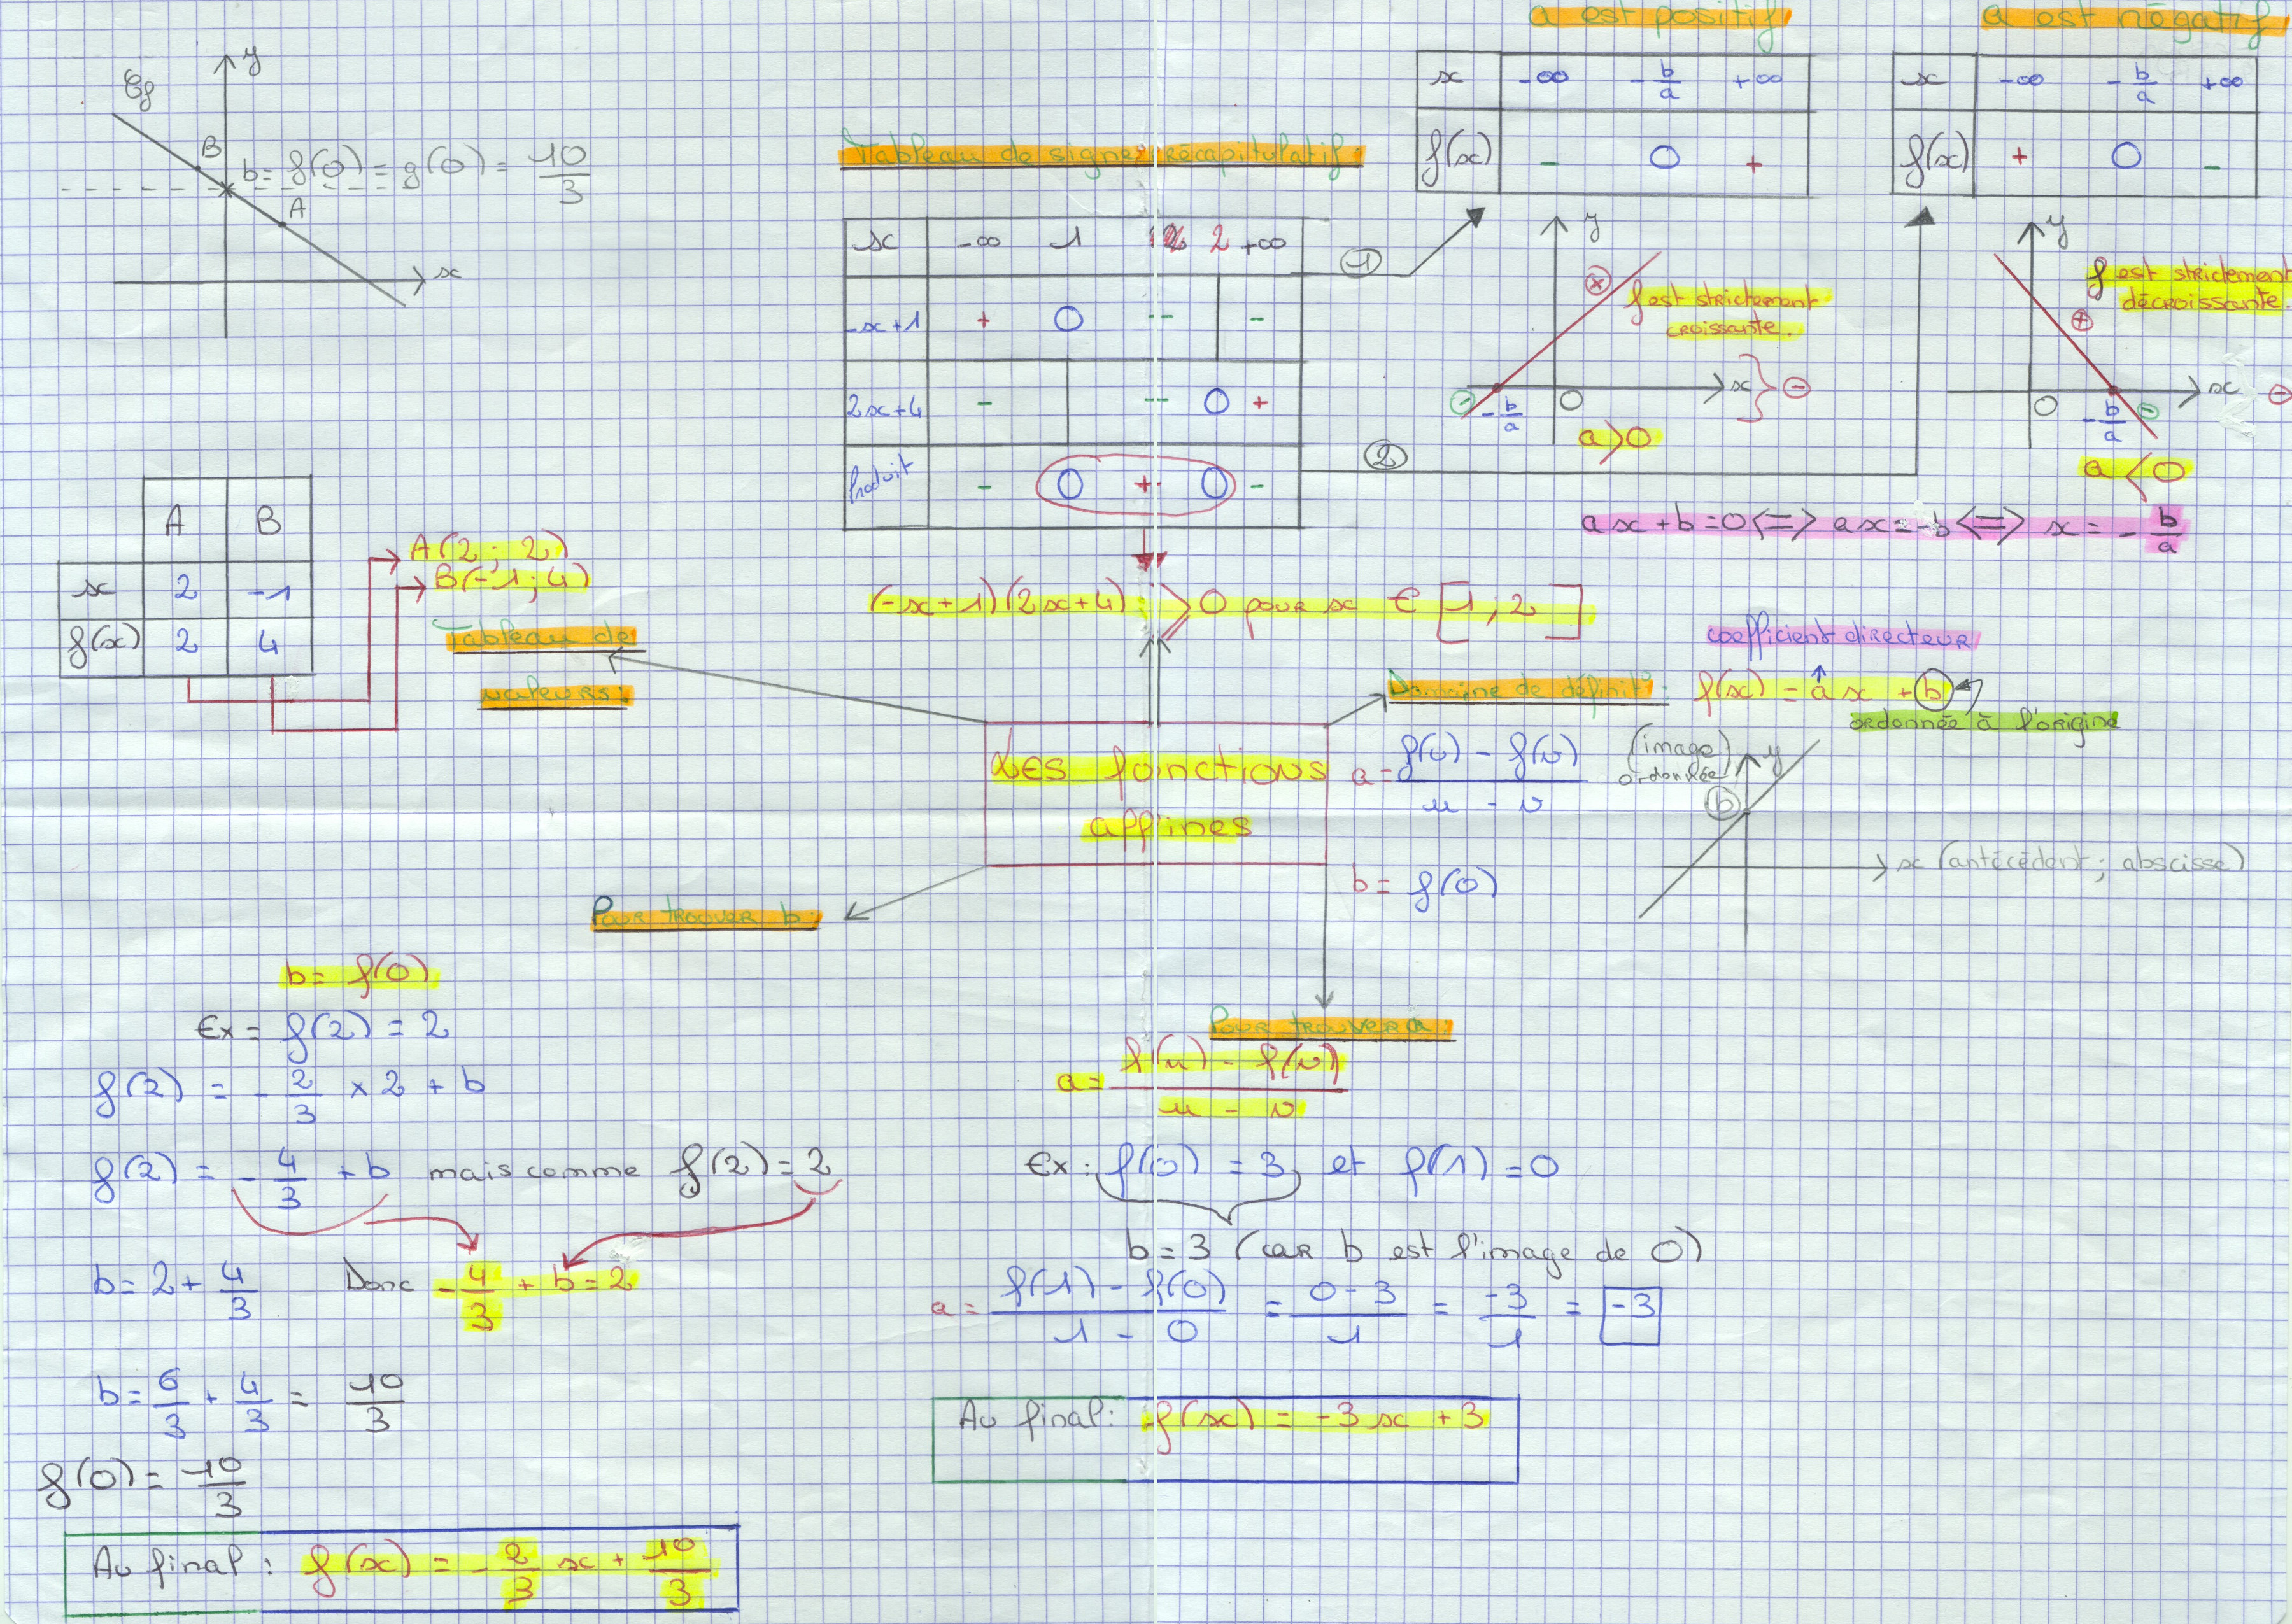 a est positif
a est négatif
x -∞ -b/a +∞
f(x) - 0 +
x -∞ -b/a +∞
f(x) + 0 -
Cf
y
B
b = f(0) = g(0) = 10/3
A
x
Tableau de signes récapitulatif:
x -∞ 1 2 +∞
-x+1 + 0 - -
2x+4 - - 0 +
Produit - 0 + 0 -
1
2
y
+
f est strictement
croissante.
x
-
- -b/a 0
a>0
y
f est strictement
décroissante.
+
x
+
0 -b/a -
a<0
ax+b=0 <=> ax=-b <=> x = -b/a
A B
x 2 -1
f(x) 2 4
A(2; 2)
B(-1; 4)
Tableau de
valeurs:
(-x+1)(2x+4) > 0 pour x € [1;2]
coefficient directeur
Domaine de définit°: f(x) = ax + b
ordonnée à l'origine
Les fonctions
affines
a = f(u) - f(v) / u - v
b = f(0)
(image)
ordonnée
y
b
x (antécédent; abscisse)
Pour trouver b:
b = f(0)
Ex = f(2) = 2
f(2) = -2/3 × 2 + b
f(2) = -4/3 + b mais comme f(2) = 2
b = 2 + 4/3 Donc -4/3 + b = 2
b = 6/3 + 4/3 = 10/3
f(0) = 10/3
Au final: f(x) = -2/3 x + 10/3
Pour trouver a:
a = f(u) - f(v) / u - v
Ex: f(0) = 3 et f(1) = 0
b = 3 (car b est l'image de 0)
a = f(1) - f(0) / 1 - 0 = 0-3 / 1 = -3/1 = -3
Au final: f(x) = -3x + 3